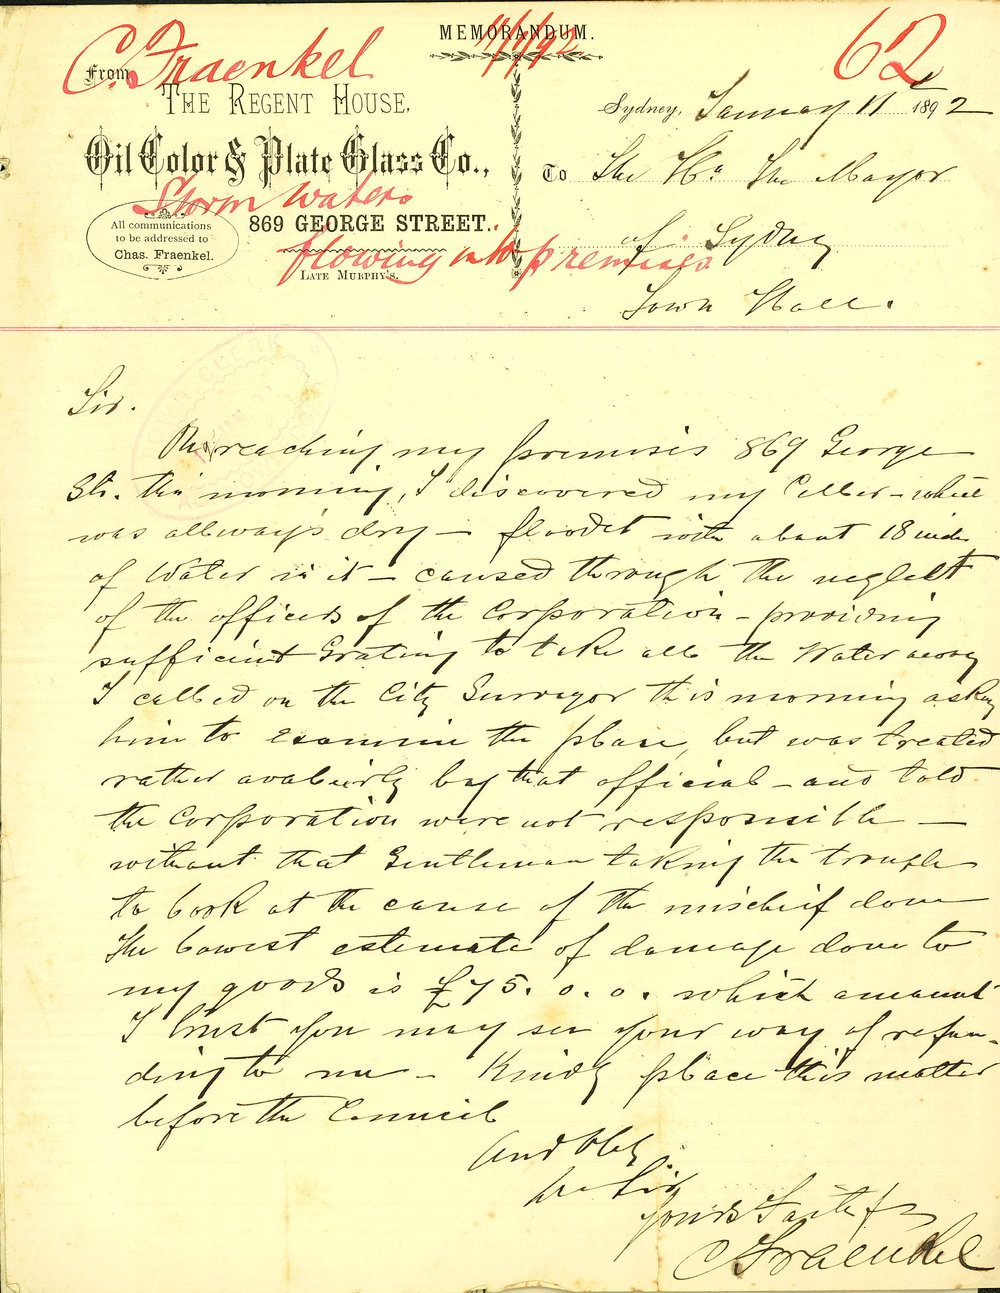 MEMORANDUM.
11/1/92
62
C. Fraenkel
From
THE REGENT HOUSE,
Oil Color & Plate Glass Co.,
Storm waters
869 GEORGE STREET.
flowing into premises
LATE MURPHY'S.
All communications
to be addressed to
Chas. Fraenkel.
Sydney, January 11 1892
To The Ho. The Mayor
of Sydney
Town Hall.
TOWN CLERK
Sir.
On reaching my premisis 869 George
St. this morning, I discovered my Celler – which
was allways dry – floodet with about 18 inch
of Water in it – caused through the neglelt
of the officers of the Corporation – providing
sufficient Grating to take all the Water away
I called on the City Surveyor this morning asking
him to examine the place, but was treated
rather by that official – and told
the Corporation were not responsible –
without that Gentleman taking the trouple
to look at the cause of the mischief done
The lowest estemate of damage done to
my goods is £75. 0. 0. which amount
I trust you may see your way of refun-
ding to me – Kindly place this matter
before the Council
And Oblg
Yours Faithfy
C Fraenkel